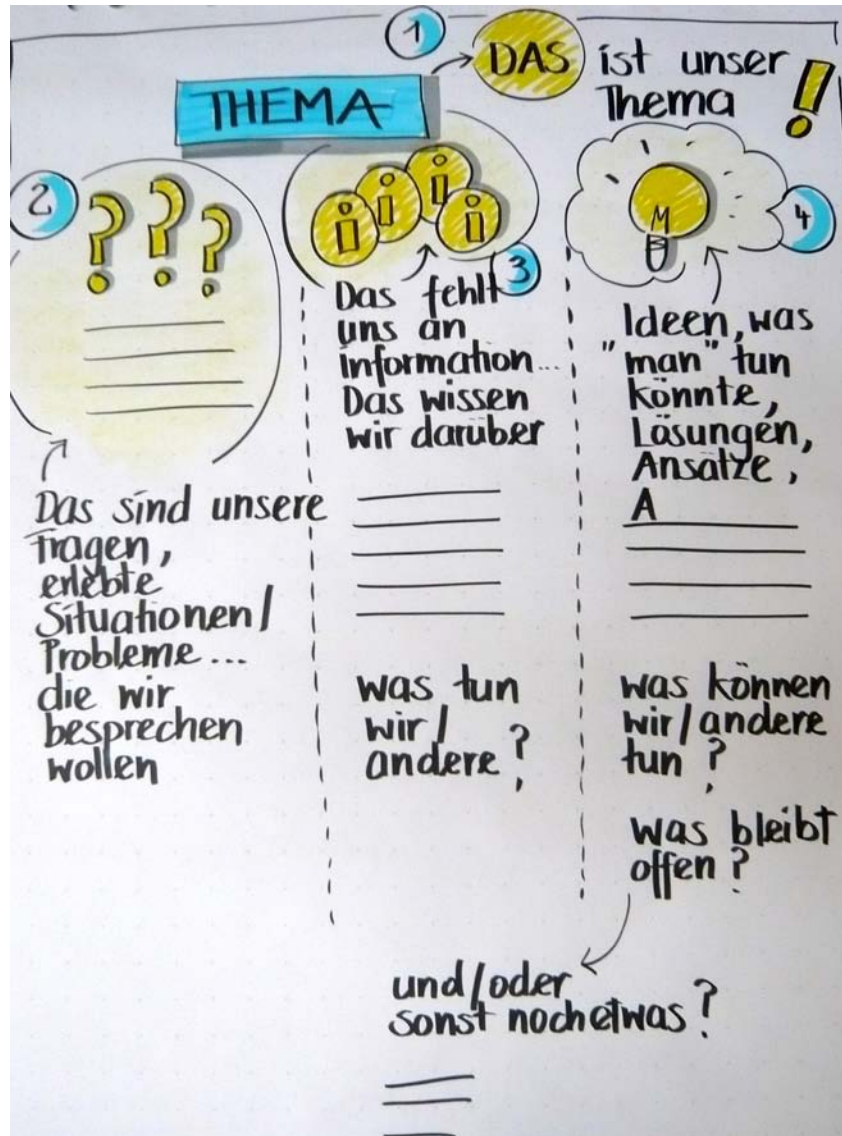 1
DAS ist unser
Thema !
THEMA
2
? ? ?
Das sind unsere
Fragen,
erlebte
Situationen/
Probleme...
die wir
besprechen
wollen
i i i i
3
Das fehlt
uns an
Information...
Das wissen
wir darüber
was tun
wir/
andere?
4
Ideen, was
"man" tun
könnte,
Lösungen,
Ansätze,
A
was können
wir/andere
tun?
was bleibt
offen?
und/oder
sonst noch etwas?